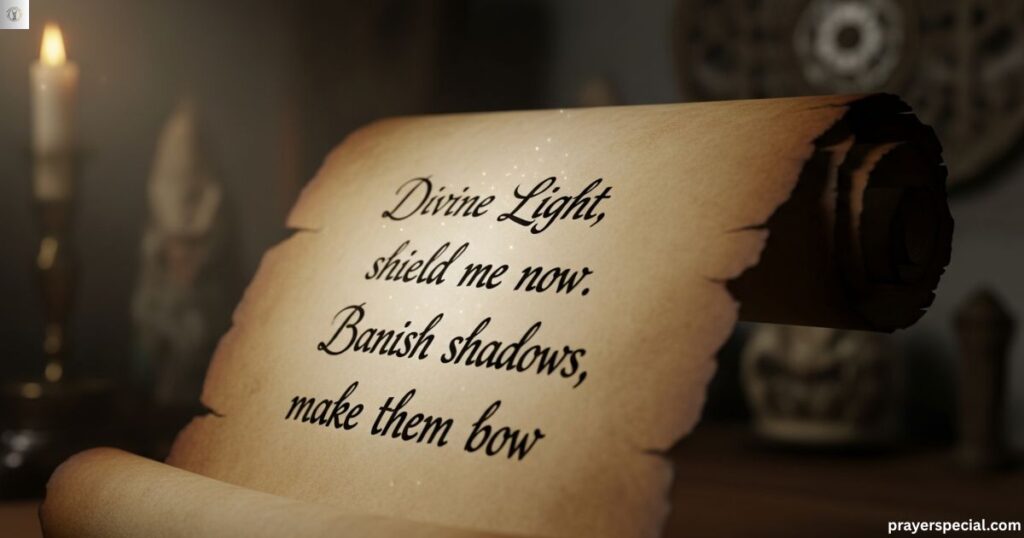 Divine Light,
shield me now.
Banish shadows,
make them bow
prayerspecial.com